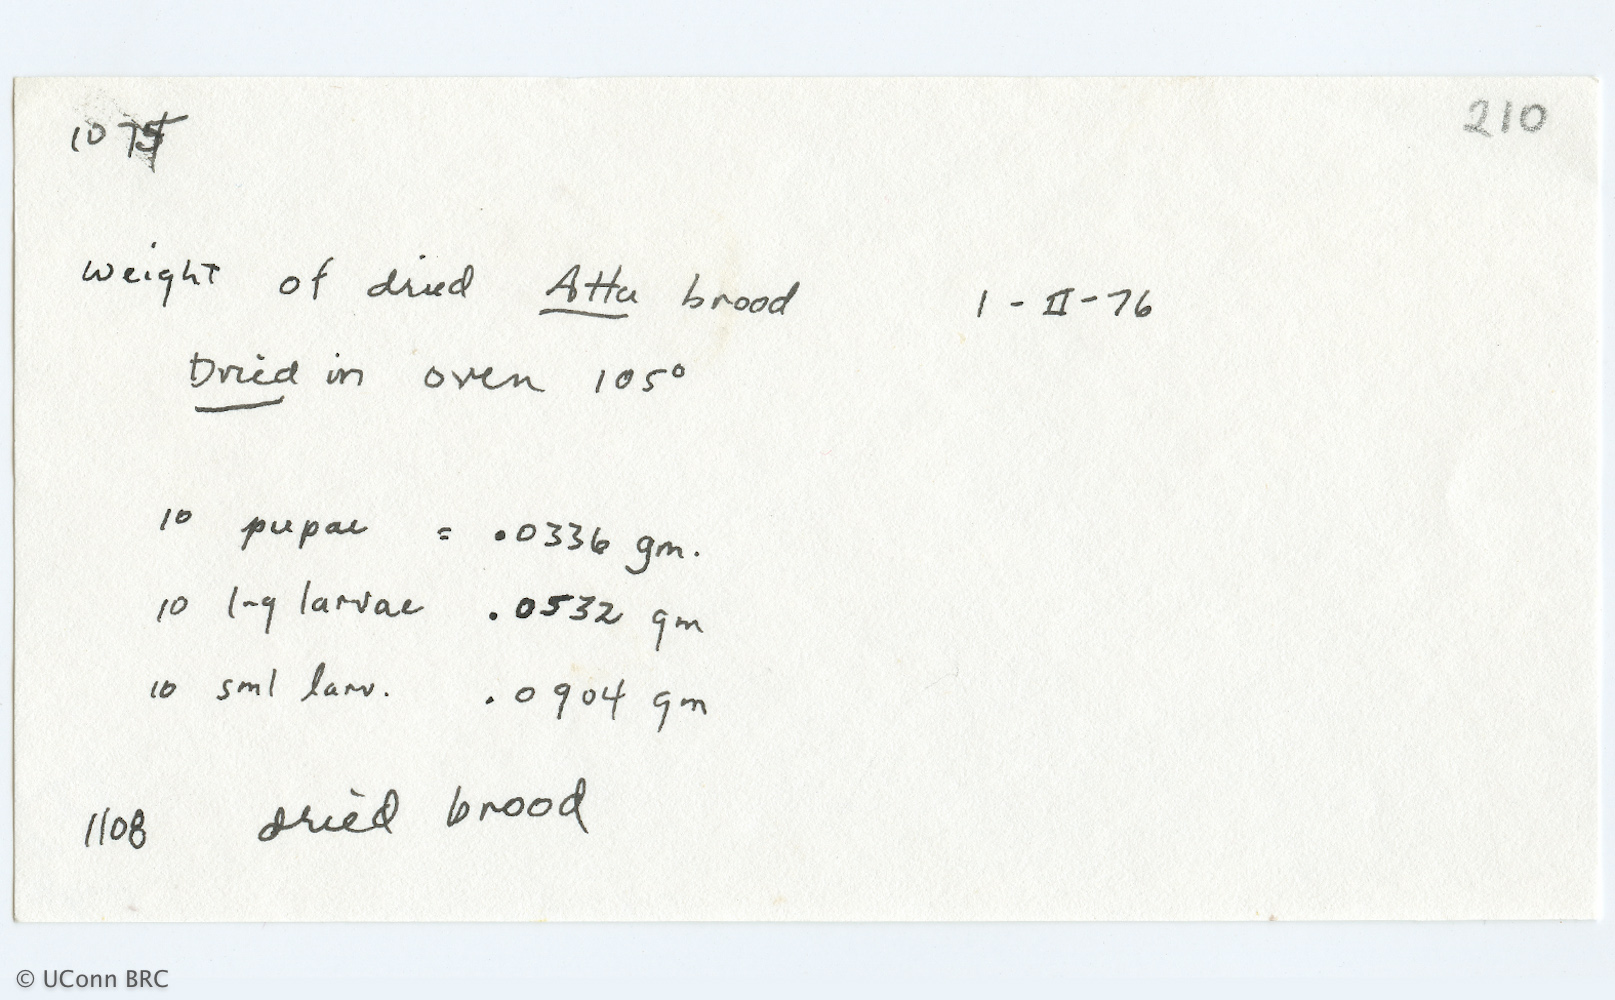 1075 210
Weight of dried Atta brood 1-II-76
Dried in oven 105°
10 pupae = .0336 gm.
10 l-g larvae .0532 gm
10 sml larv. .0904 gm
1108 dried brood
© UConn BRC